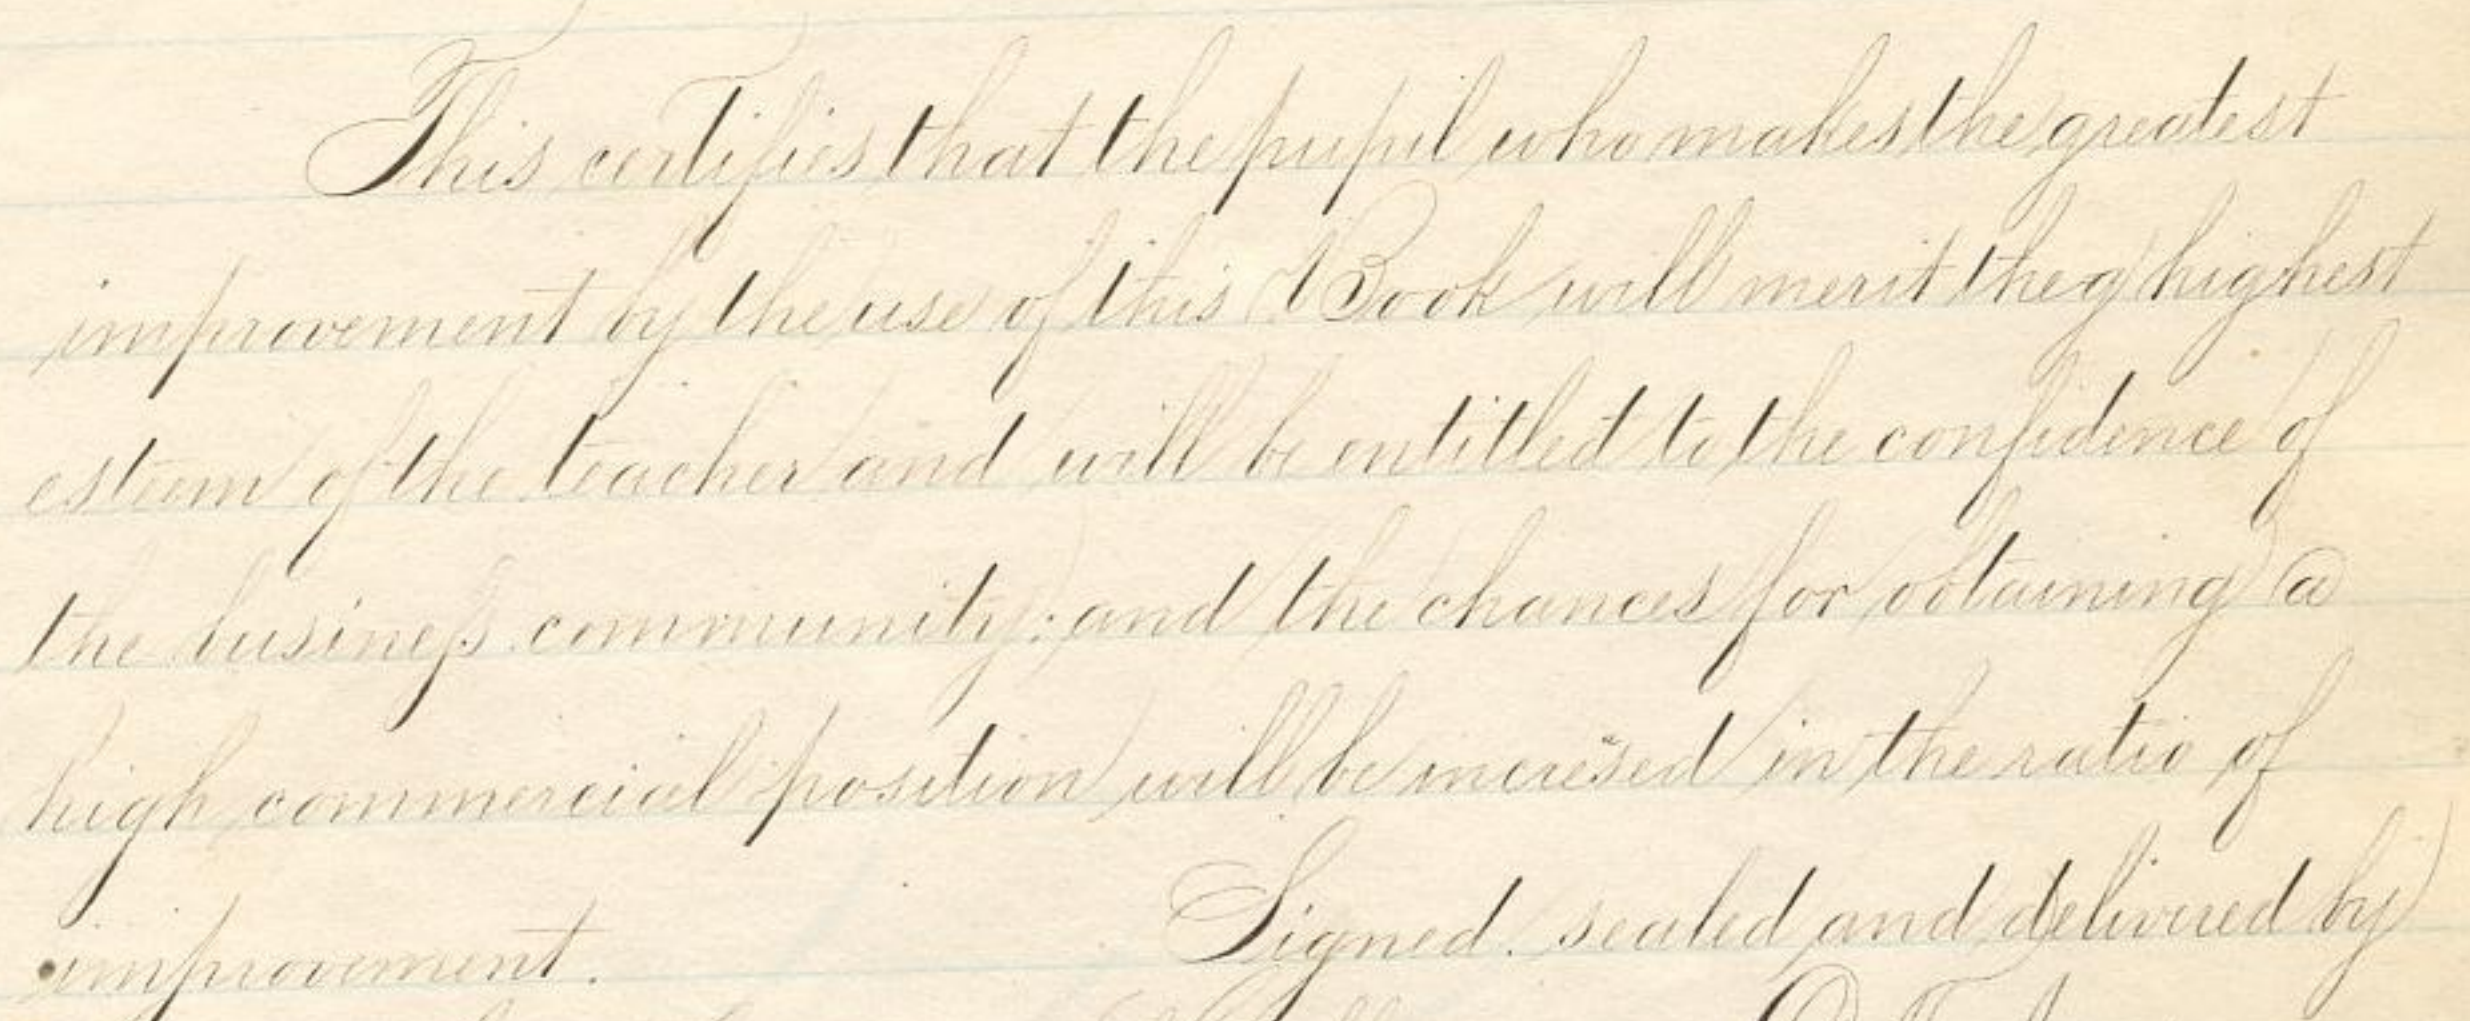 This certifies that the pupil who makes the greatest
improvement by the use of this Book will merit the highest
esteem of the teacher and will be entitled to the confidence of
the business community: and the chances for obtaining a
high commercial position will be incresed in the ratio of
improvement. Signed. sealed and delivered by